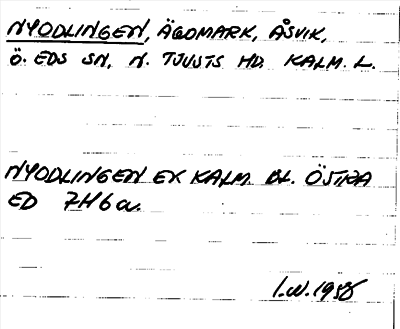 NYODLINGEN, ÄGOMARK, ÅSVIK,
Ö. EDS SN, N. TJUSTS HD. KALM. L.
NYODLINGEN EK KALM. BL. ÖSTRA
ED 7H6a.
I.W. 1956